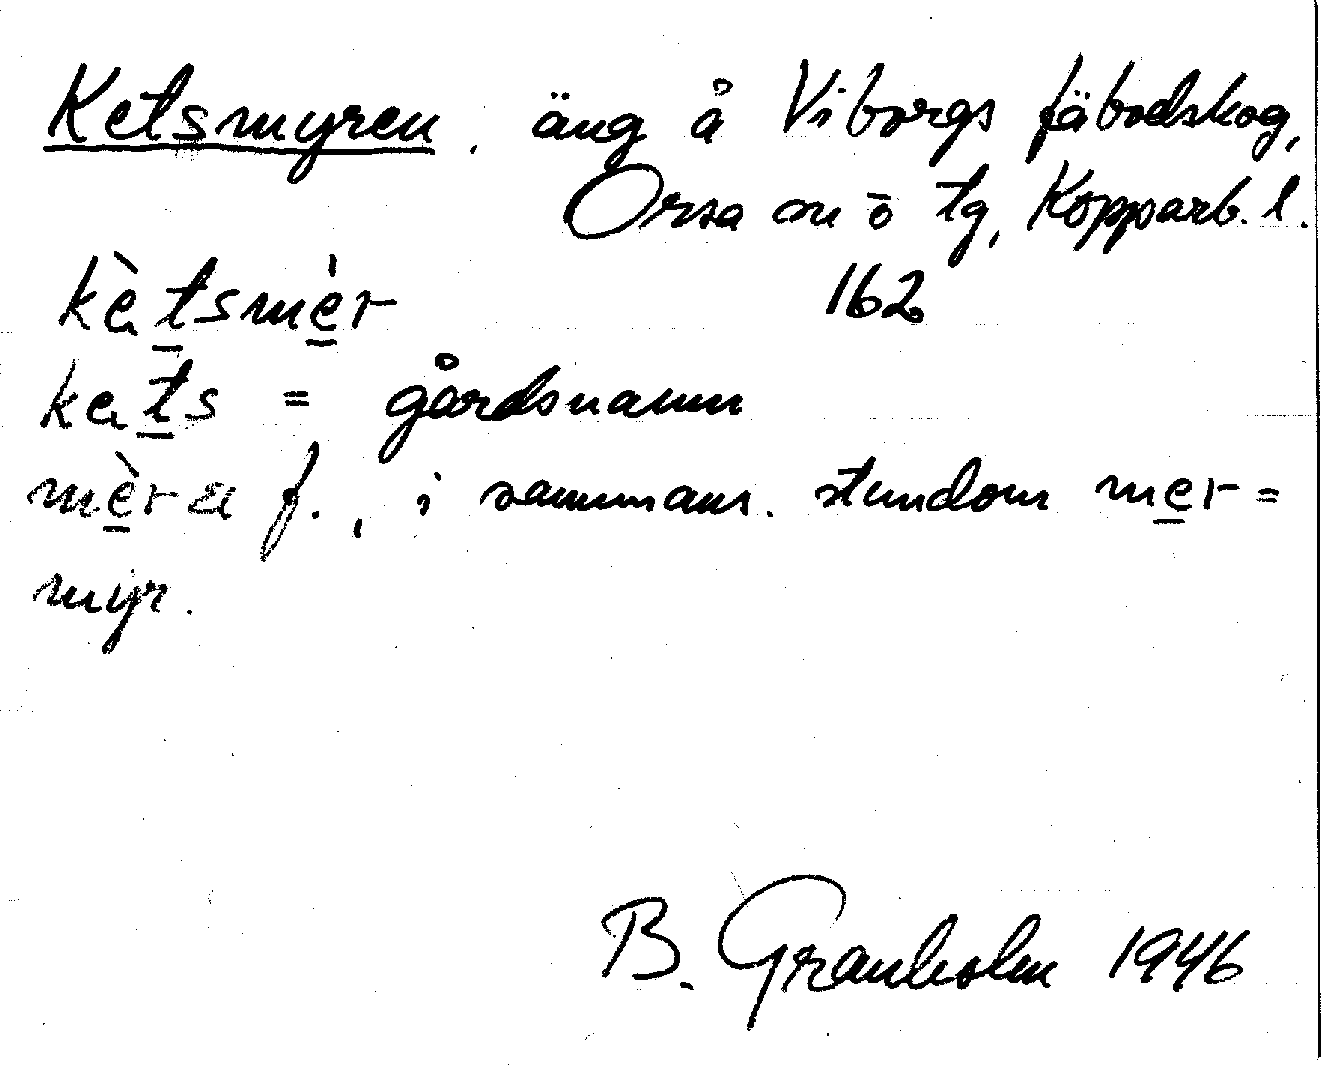 Ketsmyren, äng å Viborgs fäbodskog,
Orsa sn o tg, Kopparb. l.
kètsmér 162
kets = gårdsnamn
mèra f., i sammans. stundom mer =
myr.
B. Granholm 1946